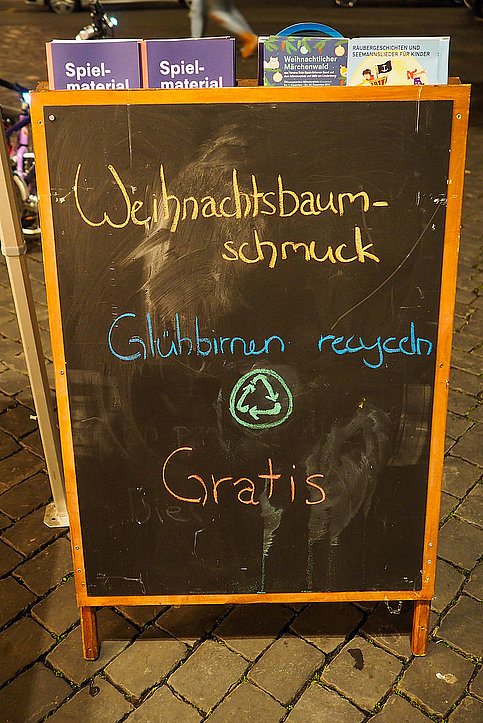 Spiel-
material
Spiel-
material
Weihnachtlicher
Märchenwald
RÄUBERGESCHICHTEN UND
SEEMANNSLIEDER FÜR KINDER
Weihnachtsbaum-
schmuck
Glühbirnen recyceln
Gratis